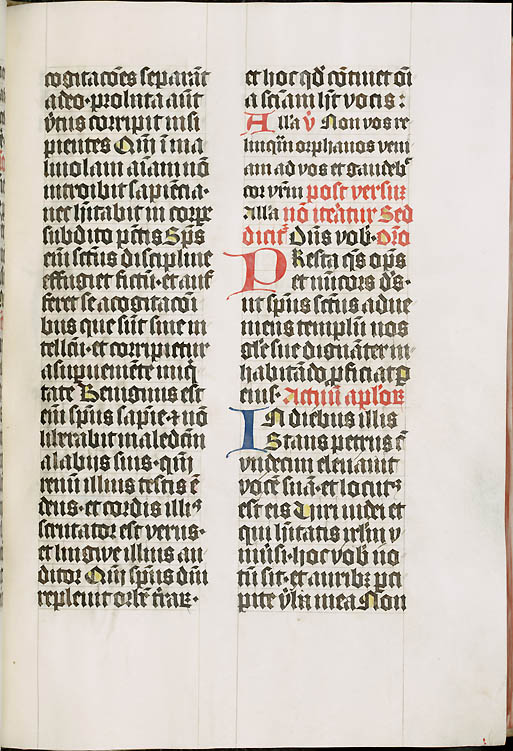 cogitacões separāt
a deo · probata aūt
v̓tus corripit insi
pientes Qm̄ ī ma
liuolam aīam nō
introibit sapiēcia ·
nec hītabit in corpe
subdito pctīs Sp̄s
eīn sctūs discipline
effugiet fictū · et auf
feret se a cogitacōi
bus que sūt sine in
tellcū · et corripietur
a supueniēte iniq̄
tate Benignus est
eīn sp̄us sapīe · ⁊ nō
liberabit maledcm̄
a labijs suis · qm̄
renū illius testis ē
deus · et cordis illi⁹
scrutator est verus ·
et lingwe illius au
ditor Qm̄ sp̄us dn̄i
repleuit orbē t̄rar ·
et hoc qd̓ cōtinet oīa
sciam hēt vocis :
Alla v̓ Non vos re
linqm̄ orphanos veni
am ad vos et gaudebit
cor vrm̄ post versum
alla nō iteratur Sed
dicit̓ Dn̄s vob̓ · Oro̓
Presta qs̄ op̄s
et mīcors ds̄ ·
ut sp̄us sctūs adue
niens templū nos
glīe sue dignāter in
habitādo pficiat p
eius · Actuū aplor
In diebus illis
Stans petrus cū
vndecim eleuauit
vocē suā · et locut⁹
est eis Uiri iudei et
qui hītatis ierlm̄ v
niūsi · hoc vob̓ no
tū sit · et aurib⁹ pci
pite v̓ba mea Non